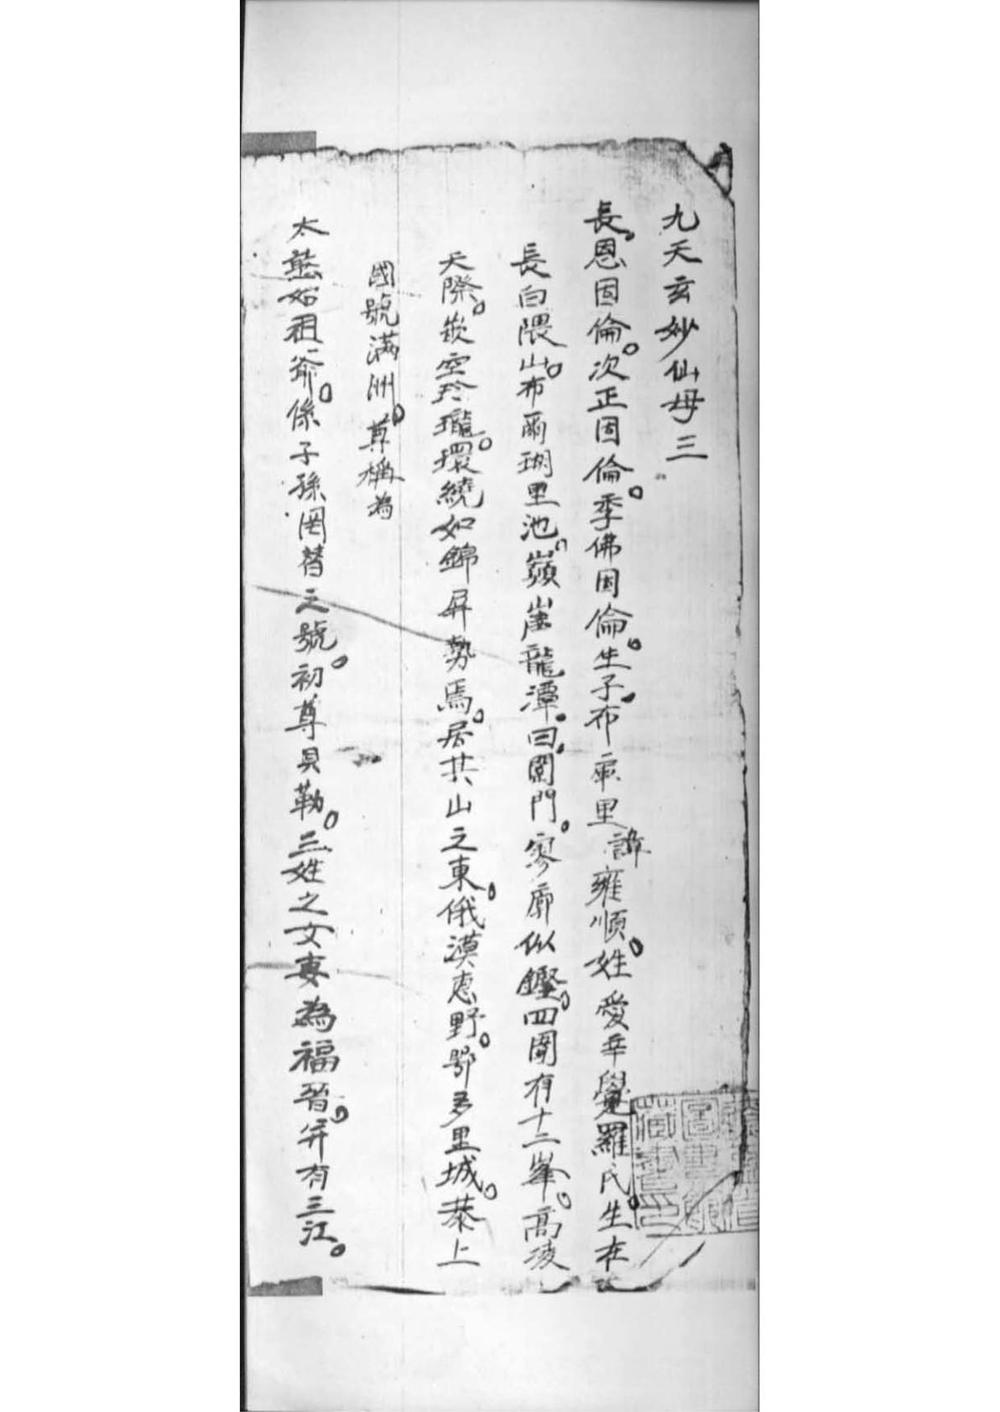 九天玄妙仙母三
長恩固倫。次正固倫。季佛固倫。生子布庫里諱雍順。姓愛辛覺羅氏。生在
長白隈山。布爾瑚里池。巔崖龍潭。曰闥門。寥廓似鏗。四圍有十二峯。高凌
天際。嵌空玲瓏。環繞如錦屏勢焉。居其山之東。俄漠惠野。鄂多里城。恭上
國號滿洲。尊稱為
太熊始祖爺。係子孫罔替之號。初尊貝勒。三姓之女妻為福晋。并有三江。
圖書館
藏書印